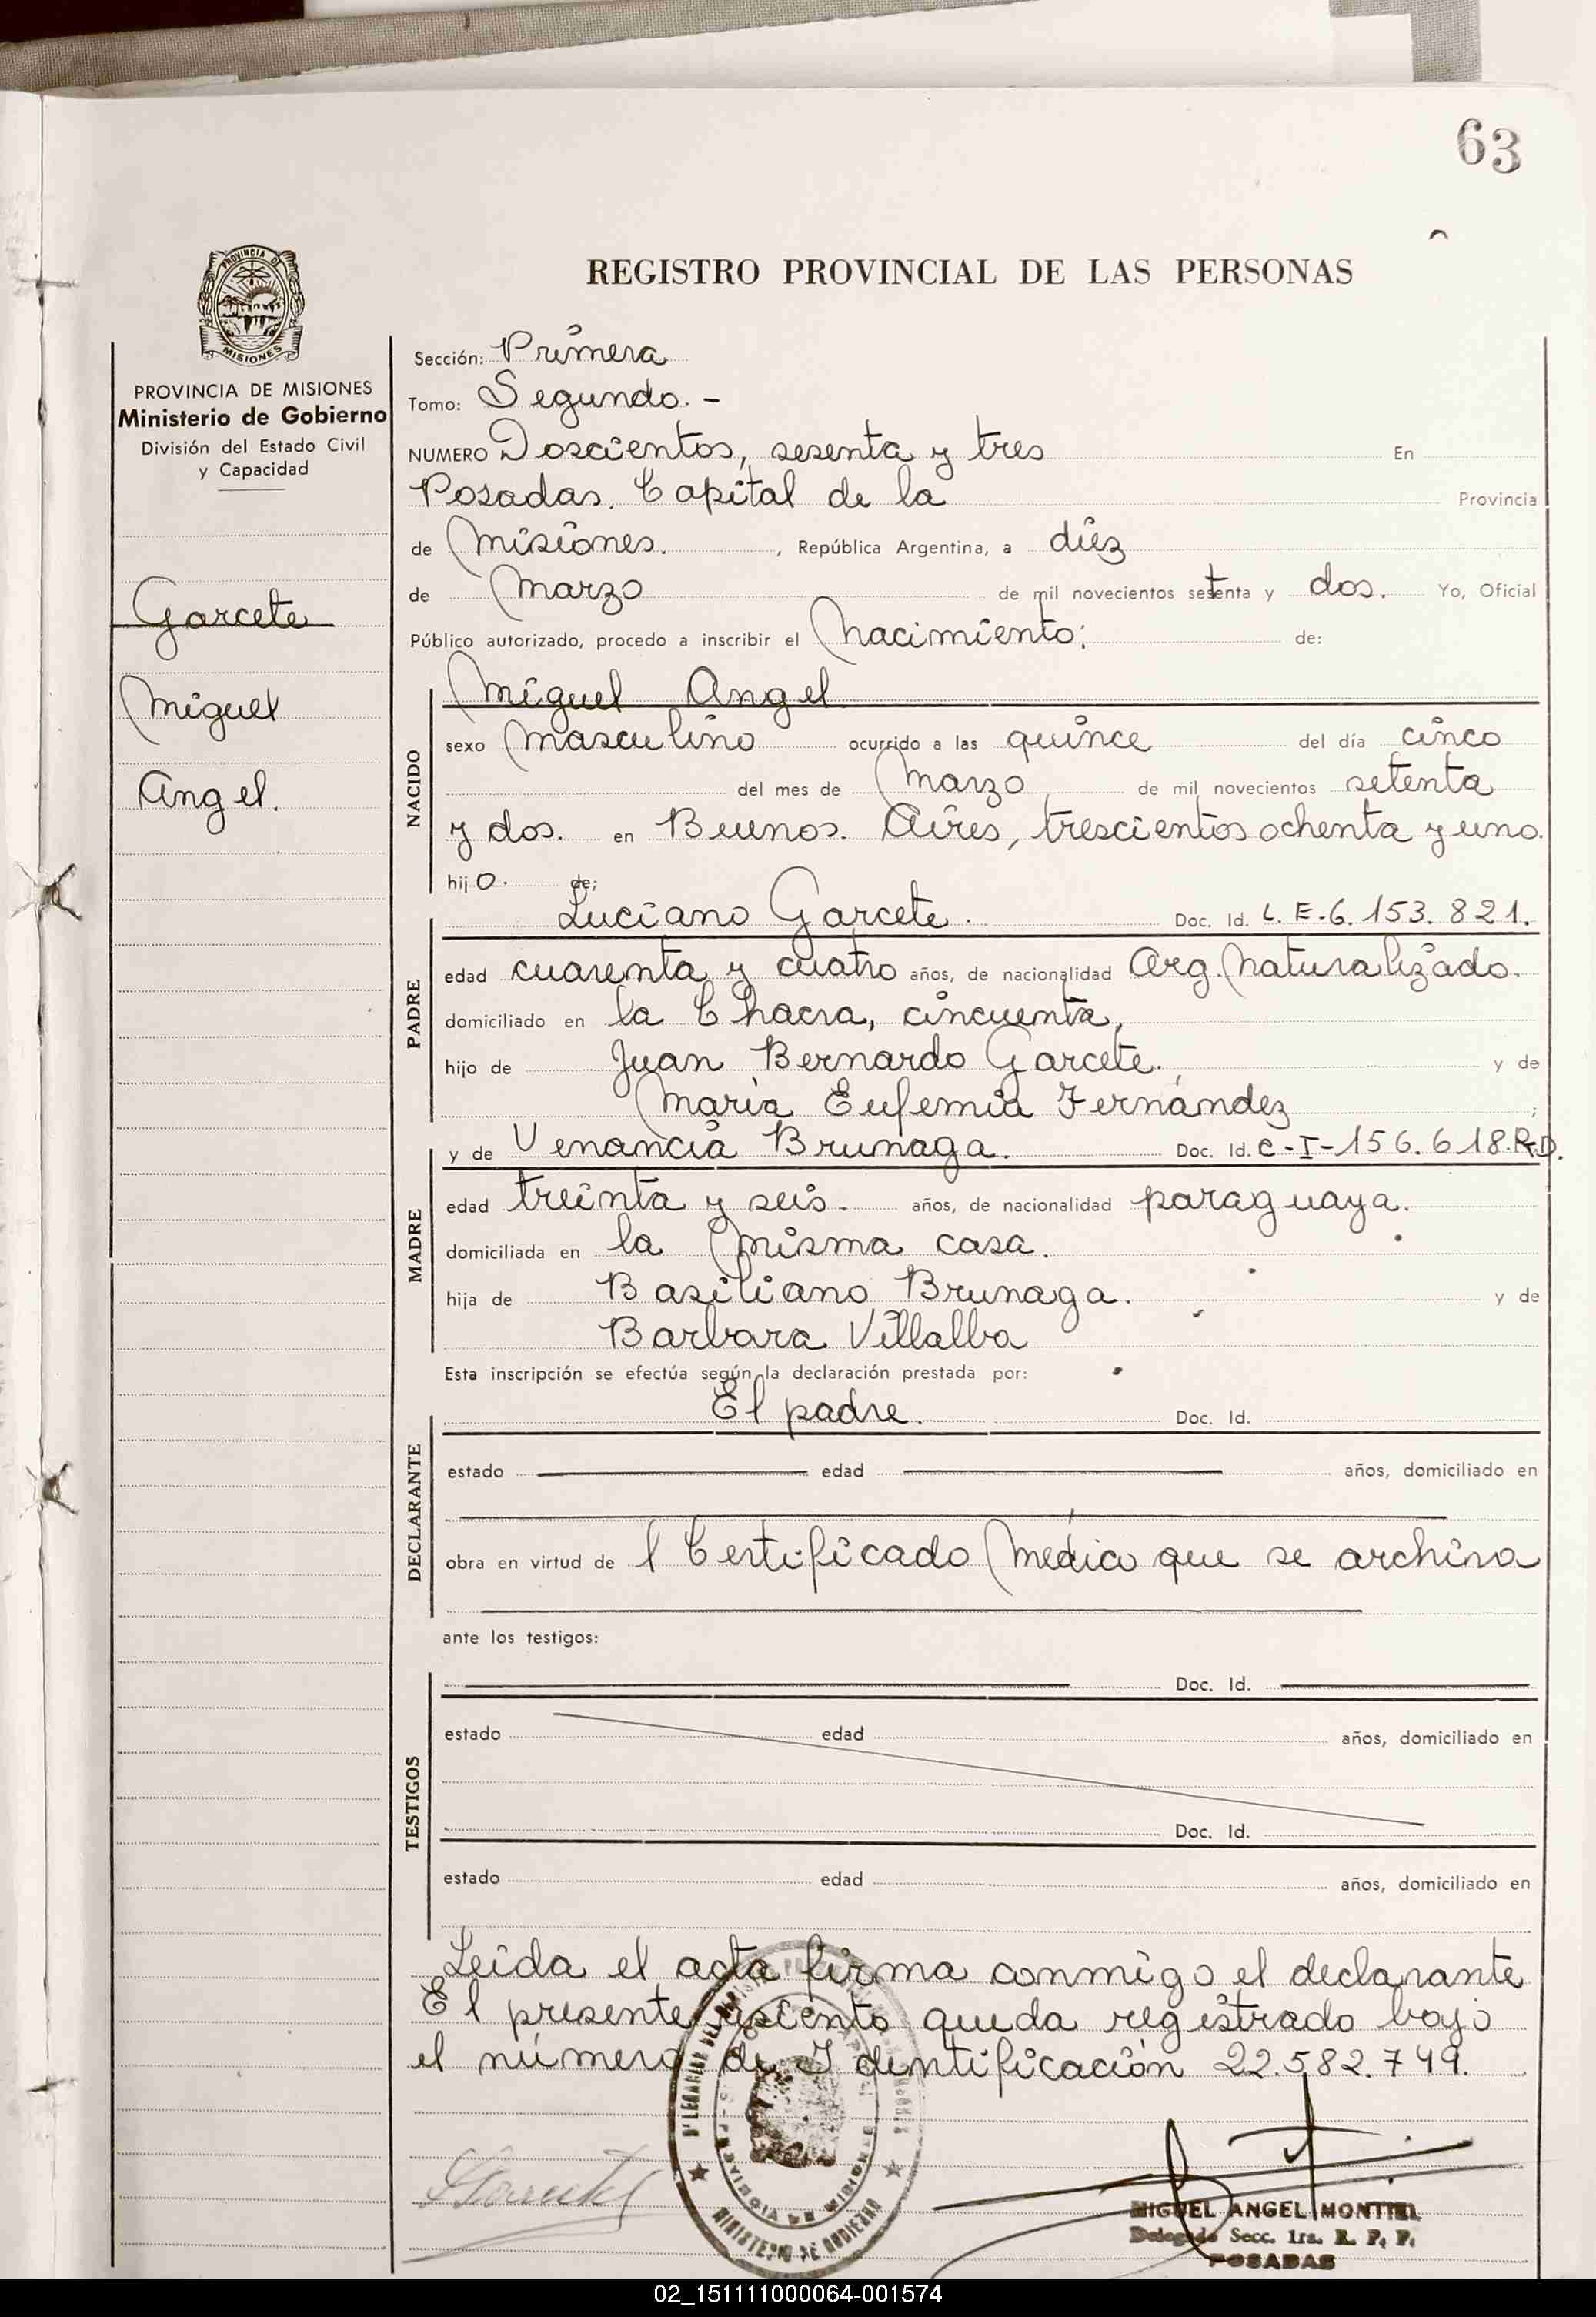 63
REGISTRO PROVINCIAL DE LAS PERSONAS
PROVINCIA DE
MISIONES
PROVINCIA DE MISIONES
Ministerio de Gobierno
División del Estado Civil
y Capacidad
Garcete
Miguel
Angel.
Sección: Primera
Tomo: Segundo. -
NUMERO Doscientos, sesenta y tres En
Posadas. Capital de la Provincia
de Misiones. , República Argentina, a diez
de Marzo de mil novecientos setenta y dos. Yo, Oficial
Público autorizado, procedo a inscribir el Nacimiento: de:
NACIDO
Miguel Angel
sexo Masculino ocurrido a las quince del día cinco
del mes de Marzo de mil novecientos setenta
y dos. en Buenos. Aires, trescientos ochenta y uno.
hijo. de;
PADRE
Luciano Garcete. Doc. Id. L. E-6.153.821.
edad cuarenta y cuatro años, de nacionalidad Arg. Naturalizado.
domiciliado en la Chacra, cincuenta,
hijo de Juan Bernardo Garcete. y de
María Eufemia Fernández ;
MADRE
y de Venancia Brunaga. Doc. Id. C-I-156.618.R.D.
edad treinta y seis. años, de nacionalidad paraguaya.
domiciliada en la misma casa.
hija de Basiliano Brunaga. y de
Barbara Villalba
Esta inscripción se efectúa según la declaración prestada por:
DECLARANTE
El padre. Doc. Id.
estado edad años, domiciliado en
obra en virtud de l Certificado Médico que se archiva
ante los testigos:
TESTIGOS
Doc. Id.
estado edad años, domiciliado en
Doc. Id.
estado edad años, domiciliado en
Leida el acta firma conmigo el declarante
El presente asiento queda registrado bajo
el número de Identificación 22.582.749.
PROVINCIA DE MISIONES
MINISTERIO DE GOBIERNO
MIGUEL ANGEL MONTIEL
Delegado Secc. 1ra. R. P. P.
POSADAS
02_151111000064-001574